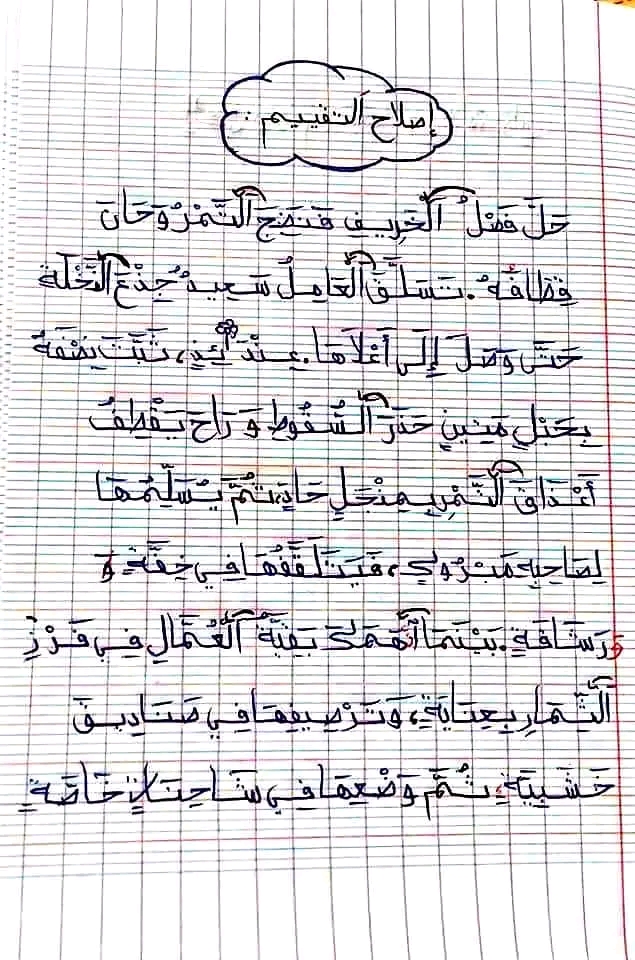 إصلاح التقييم :
حَلَّ فَصْلُ الْخَرِيفِ فَنَضِجَ التَّمْرُ وَحَانَ
قِطَافُهُ. تَسَلَّقَ الْعَامِلُ سَعِيدٌ جِذْعَ النَّخْلَةِ
حَتَّى وَصَلَ إِلَى أَعْلَاهَا. عِنْدَئِذٍ، ثَبَّتَ نَفْسَهُ
بِحَبْلٍ مَتِينٍ حَذَرَ السُّقُوطِ وَرَاحَ يَقْطِفُ
أَعْذَاقَ التَّمْرِ بِمِنْجَلٍ حَادٍّ، ثُمَّ يُسَلِّمُهَا
لِصَاحِبِهِ مَبْرُوكٍ، فَيَتَلَقَّفُهَا فِي خِفَّةٍ وَ
وَرَشَاقَةٍ. بَيْنَمَا انْهَمَكَ بَقِيَّةُ الْعُمَّالِ فِي فَرْزِ
الثِّمَارِ بِعِنَايَةٍ، وَتَرْصِيفِهَا فِي صَنَادِيقَ
خَشَبِيَّةٍ، ثُمَّ وَضْعِهَا فِي شَاحِنَاتٍ خَاصَّةٍ